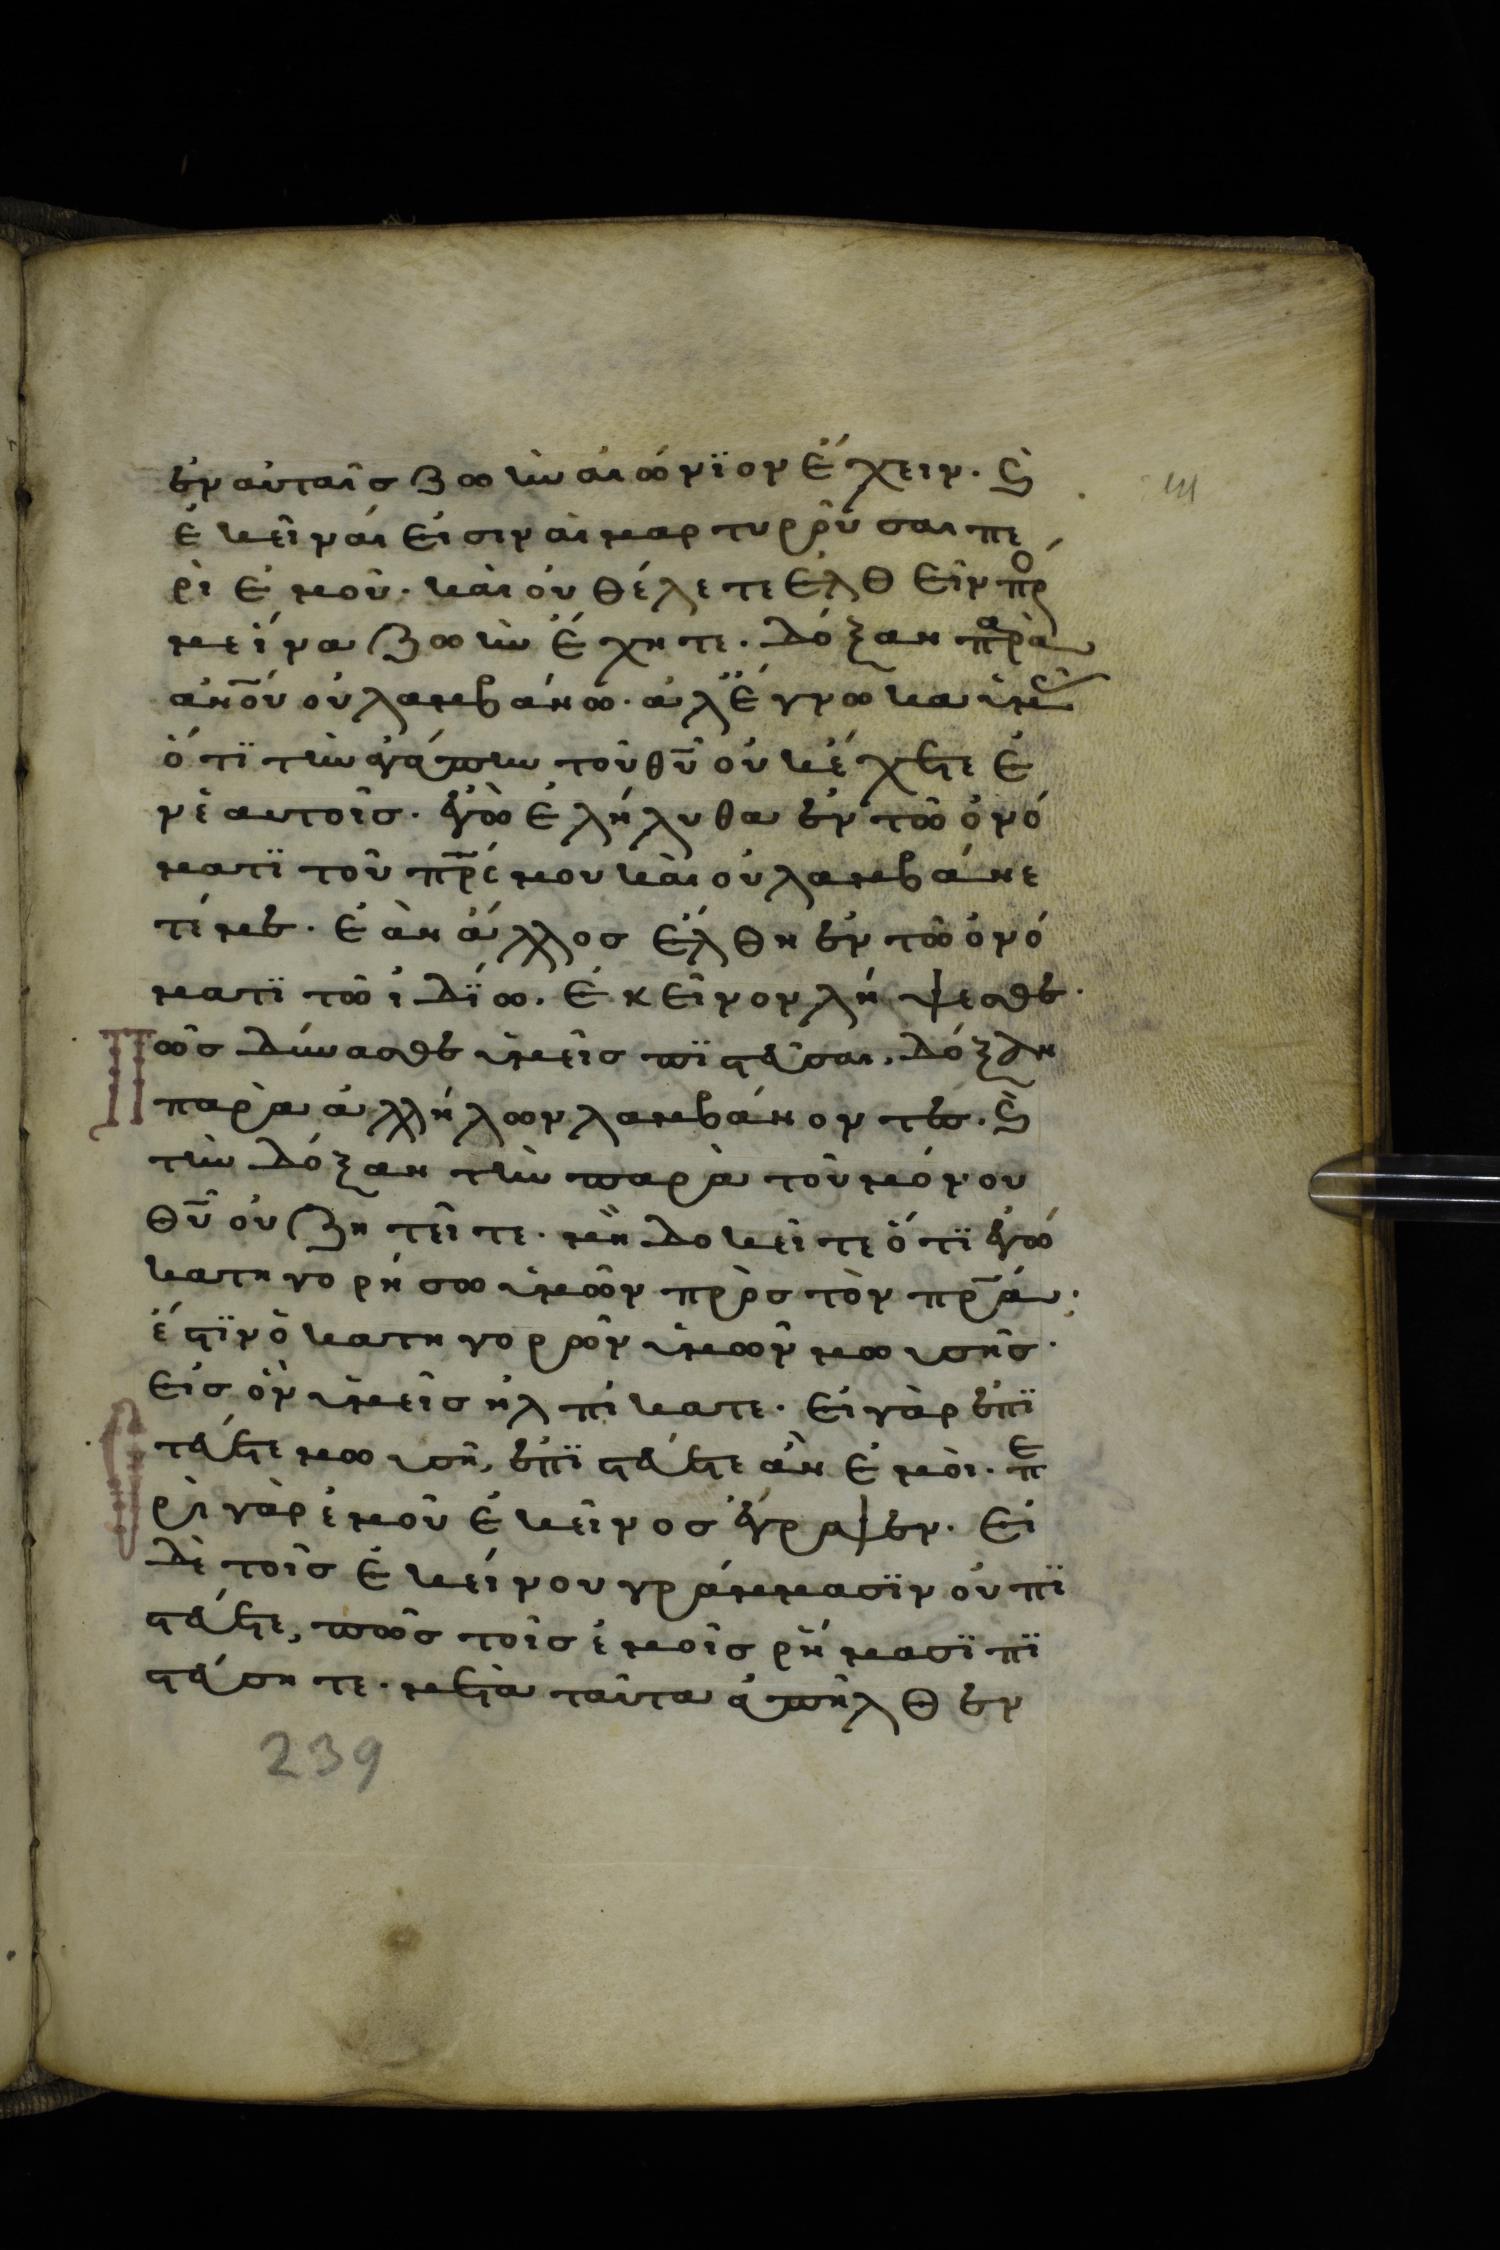 ἐν αὐταῖς ζωὴν αἰώνϊον ἔχειν. Ϛ̀
ἐκεῖναί εἰσιν αἱ μαρτυροῦσαι πε
ρὶ ἐμοῦ. καὶ οὐ θέλετε ἐλθεῖν πρό
με ἵνα ζωὴν ἔχητε. δόξαν παρὰ
ἀν̅ο̅υ̅ οὐ λαμβάνω. ἀλ ἔγνωκα ὑμᾶς
ὅτϊ τὴν ἀγάπην τοῦ θ̅υ̅ οὐκ ἔχετε ἐ
ν ἑαυτοῖς. ἐγὼ ἐλήλυθα ἐν τῶ ὀνό
ματϊ τοῦ π̅ρ̅ς μου καὶ οὐ λαμβάνε
τέ με. ἐὰν ἄλλος ἔλθη ἐν τῶ ὀνό
ματϊ τῶ ἰδΐω. ἐκεῖνον λήψεσθε.
Πῶς δύνασθε ὑμεῖς πϊστεῦσαι, δόξαν
παρὰ ἀλλήλων λαμβάνοντες. Ϛ̀
τὴν δόξαν τὴν παρὰ τοῦ μόνου
θ̅υ̅ οὐ ζητεῖτε. μὴ δοκεῖτε ὅτϊ ἐγὼ
κατηγορήσω ὑμῶν πρὸς τὸν π̅ρ̅α.
ἔστϊν ὁ κατηγορῶν ὑμῶν μωυσῆς.
εἰς ὃν ὑμεῖς ἠλπίκατε. εἰ γὰρ ἐπϊ
τεύετε μωυσῆ, ἐπϊστεύετε ἂν ἐμοὶ. πε
ρὶ γὰρ ἐμοῦ ἐκεῖνος ἔγραψεν. εἰ
δὲ τοῖς ἐκείνου γράμμασϊν οὐ πϊ
στεύετε, πῶς τοῖς ἐμοῖς ῥήμασϊ πϊ
στεύσητε. μετὰ ταῦτα ἀπῆλθεν
239